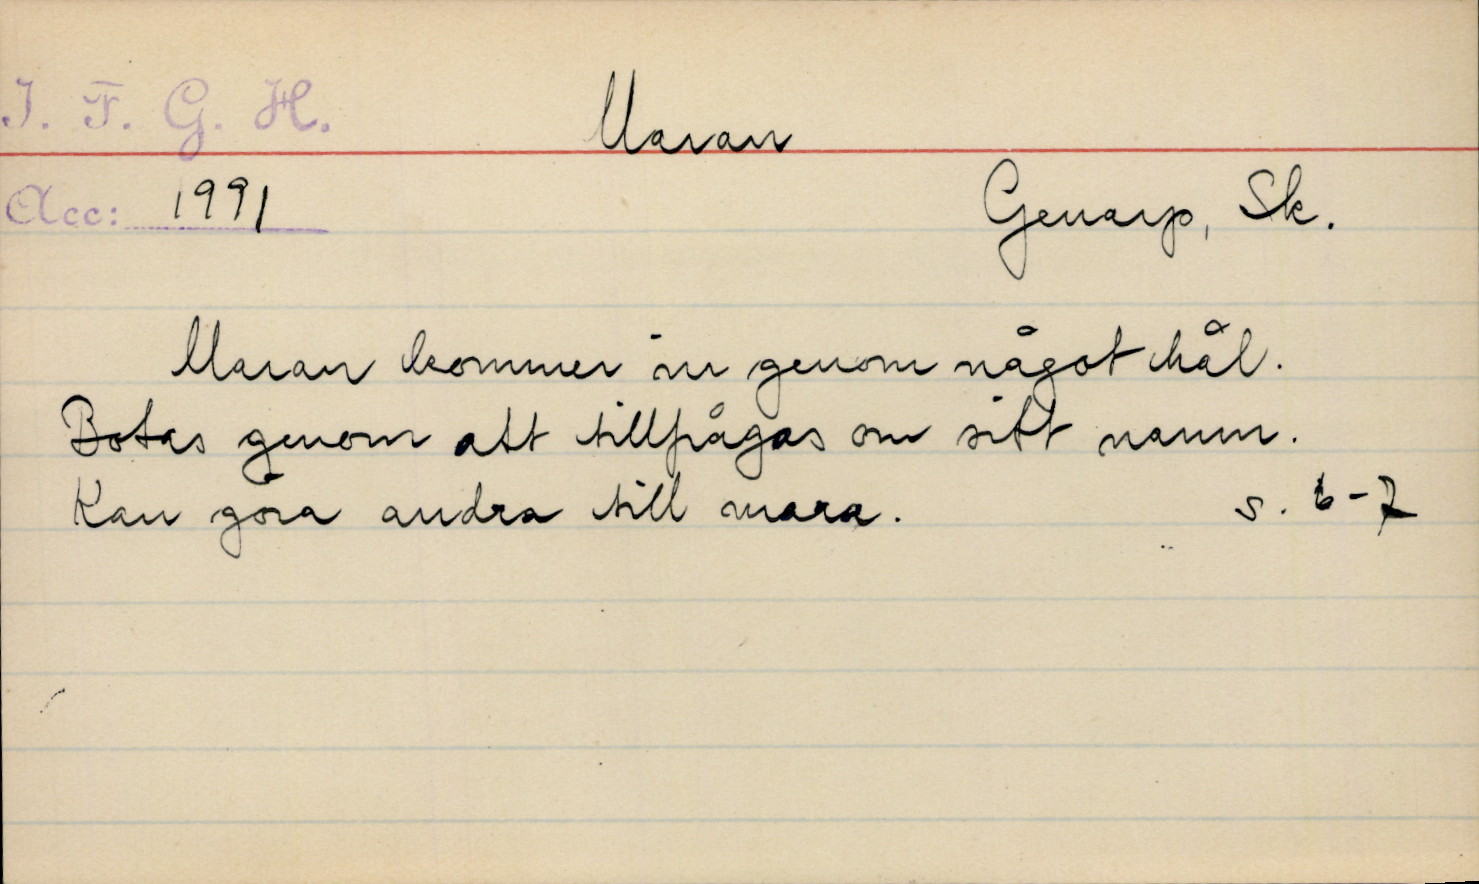 I. F. G. H.
Maran
Acc: 1991
Genarp, Sk.
Maran kommer in genom något hål.
Botas genom att tillfrågas om sitt namn.
Kan göra andra till mara. s. 6-7